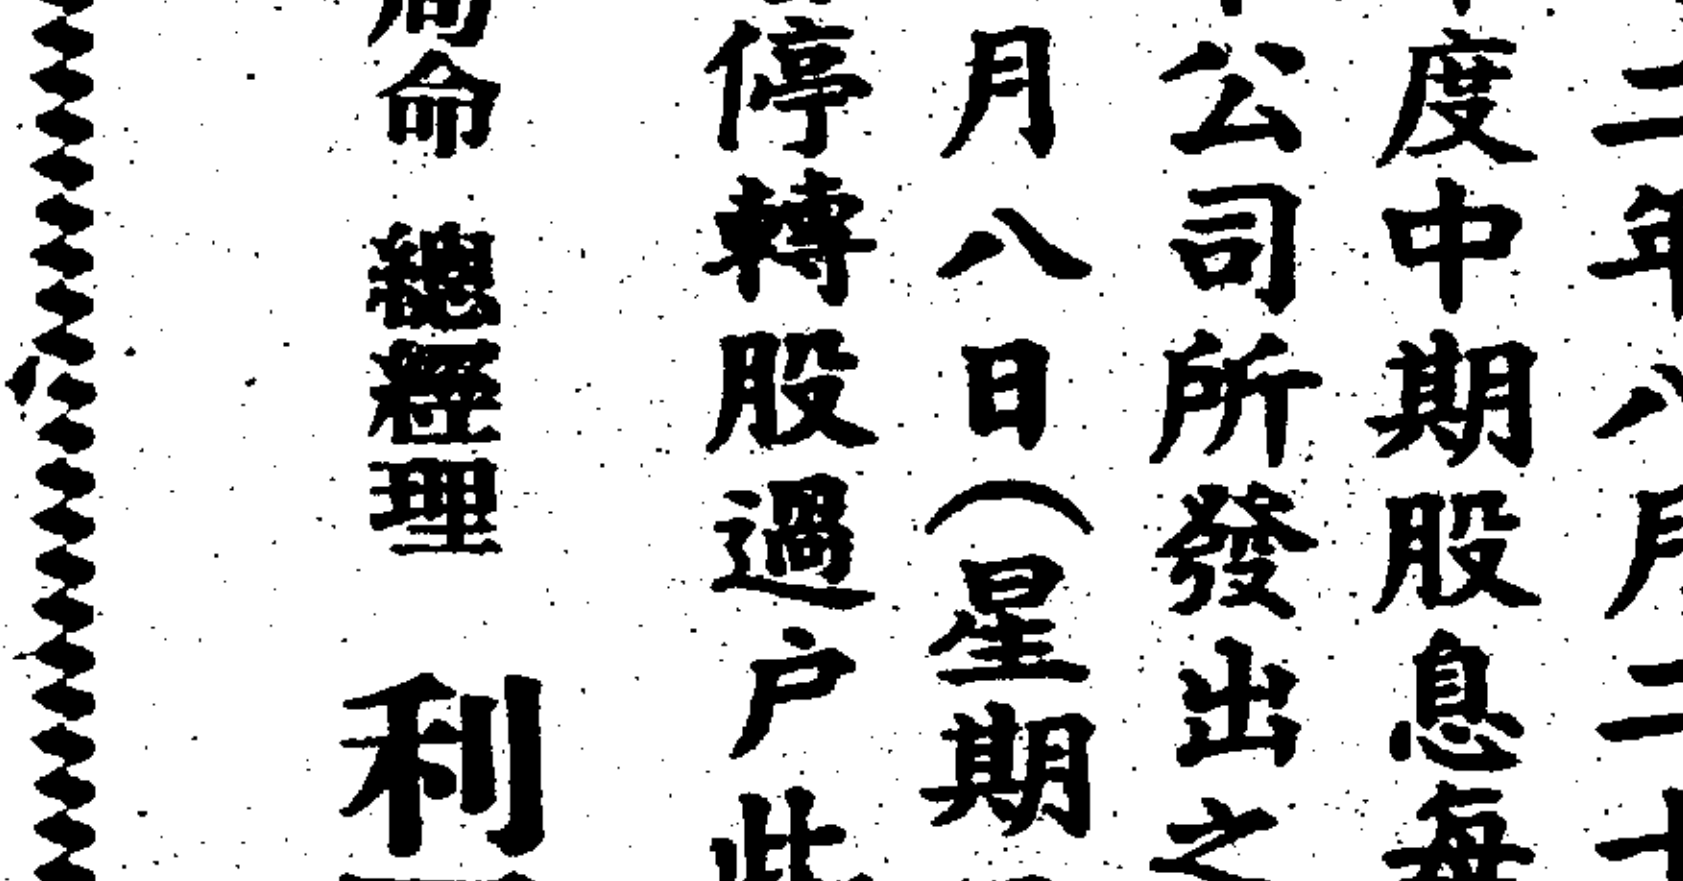 二年八月二十
度中期股息每
公司所發出之
月八日（星期
停轉股過户此
命 總經理 利